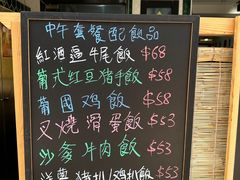 中午套餐配飲品
紅酒逼牛尾飯 $68
葡式紅豆猪手飯 $58
葡國鸡飯 $58
叉燒滑蛋飯 $53
沙爹牛肉飯 $53
猪扒/鸡扒飯 $53